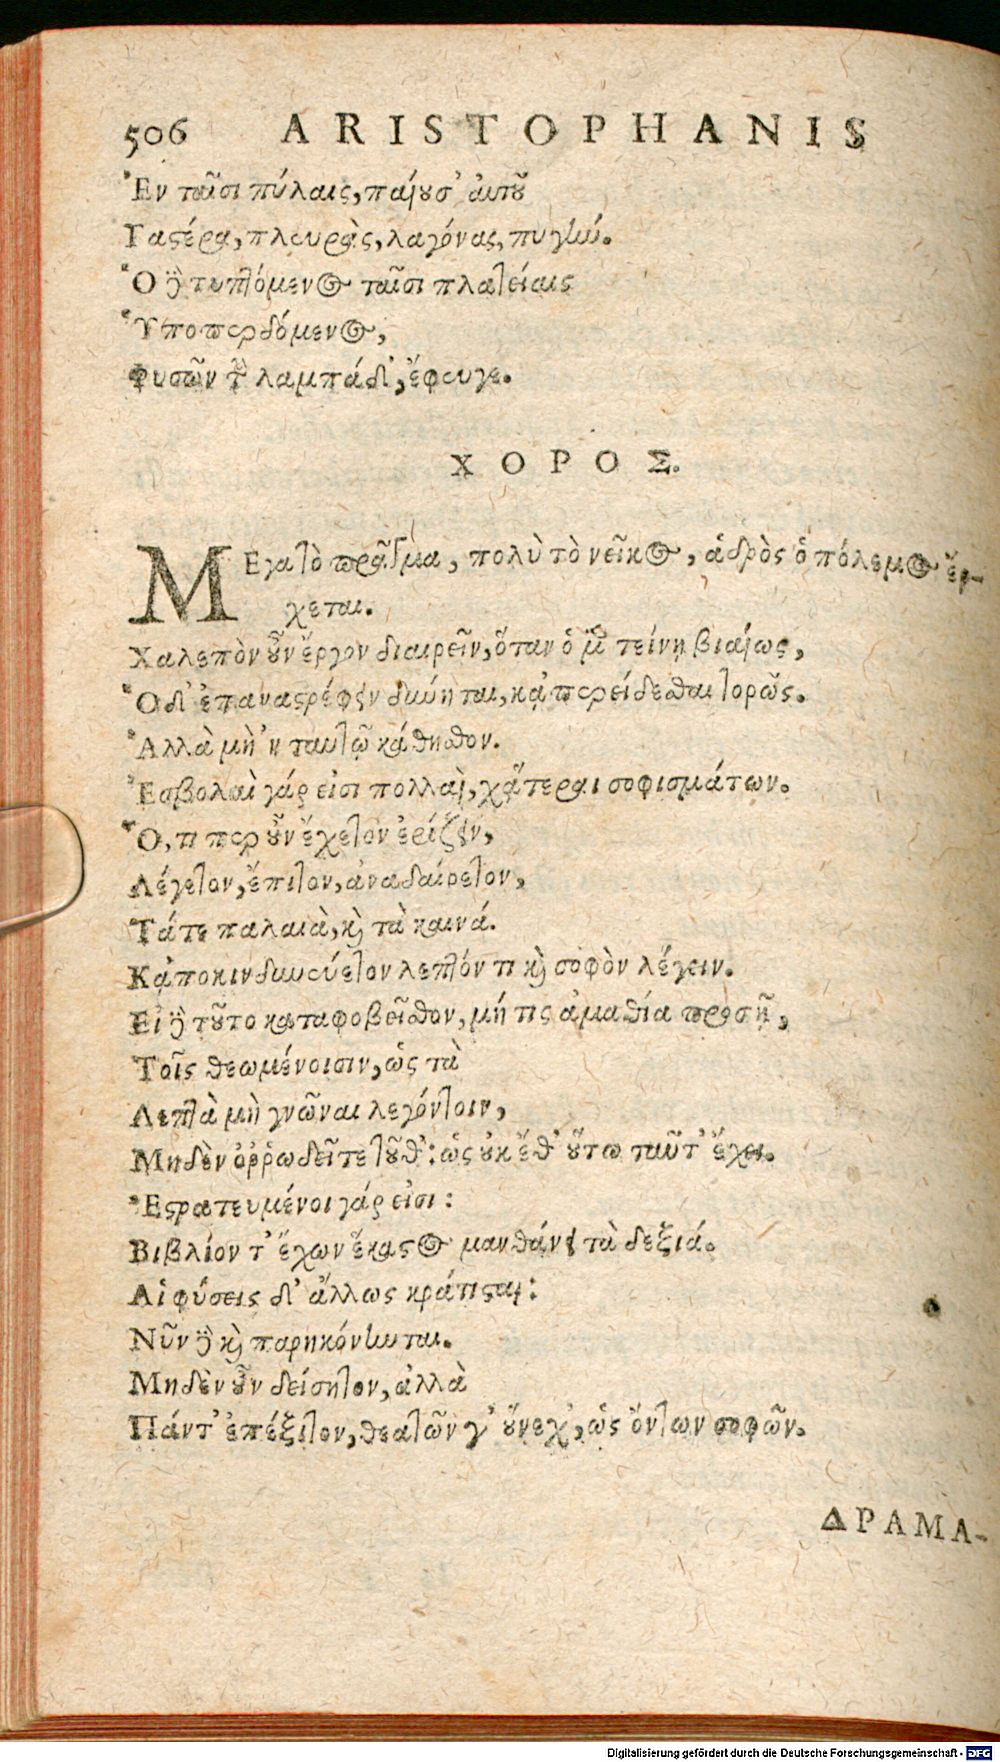 506 ARISTOPHANIS
Ἐν ταῖσι πύλαις, παίουσ' αὐτοῦ
Γαστέρα, πλευρὰς, λαγόνας, πυγήν.
Ὁ δὲ τυπτόμενος ταῖσι πλατείαις
Ὑποπερδόμενος,
Φυσῶν τὴν λαμπάδ', ἔφευγε.
ΧΟΡΟΣ.
ΜΕγα τὸ πρᾶγμα, πολὺ τὸ νεῖκος, ἁδρὸς ὁ πόλεμος ἔρ-
χεται.
Χαλεπὸν οὖν ἔργον διαιρεῖν, ὅταν ὁ μὲν τείνῃ βιαίως,
Ὁ δ' ἐπαναστρέφειν δύνηται, κἀπερείδεσθαι τορῶς.
Ἀλλὰ μὴ 'ν ταυτῷ κάθησθον.
Ἐσβολαὶ γάρ εἰσι πολλαὶ, χἄτεραι σοφισμάτων.
Ὅ, τι περ οὖν ἔχετον ἐρίζειν,
Λέγετον, ἔπιτον, ἀναδαίρετον,
Τά τε παλαιὰ, καὶ τὰ καινά.
Κἀποκινδυνεύετον λεπτόν τι καὶ σοφὸν λέγειν.
Εἰ δὲ τοῦτο καταφοβεῖσθον, μή τις ἀμαθία προσῇ,
Τοῖς θεωμένοισιν, ὡς τὰ
Λεπτὰ μὴ γνῶναι λεγόντοιν,
Μηδὲν ὀῤῥωδεῖτε τοῦθ': ὡς οὐκ ἔθ' οὕτω ταῦτ' ἔχει.
Ἐστρατευμένοι γάρ εἰσι:
Βιβλίον τ' ἔχων ἕκαστος μανθάνει τὰ δεξιά.
Αἱ φύσεις δ' ἄλλως κράτισται:
Νῦν δὲ καὶ παρηκόνηνται.
Μηδὲν οὖν δείσητον, ἀλλὰ
Πάντ' ἐπέξιτον, θεατῶν γ' οὕνεχ', ὡς ὄντων σοφῶν.
ΔΡΑΜΑ-
Digitalisierung gefördert durch die Deutsche Forschungsgemeinschaft - DFG